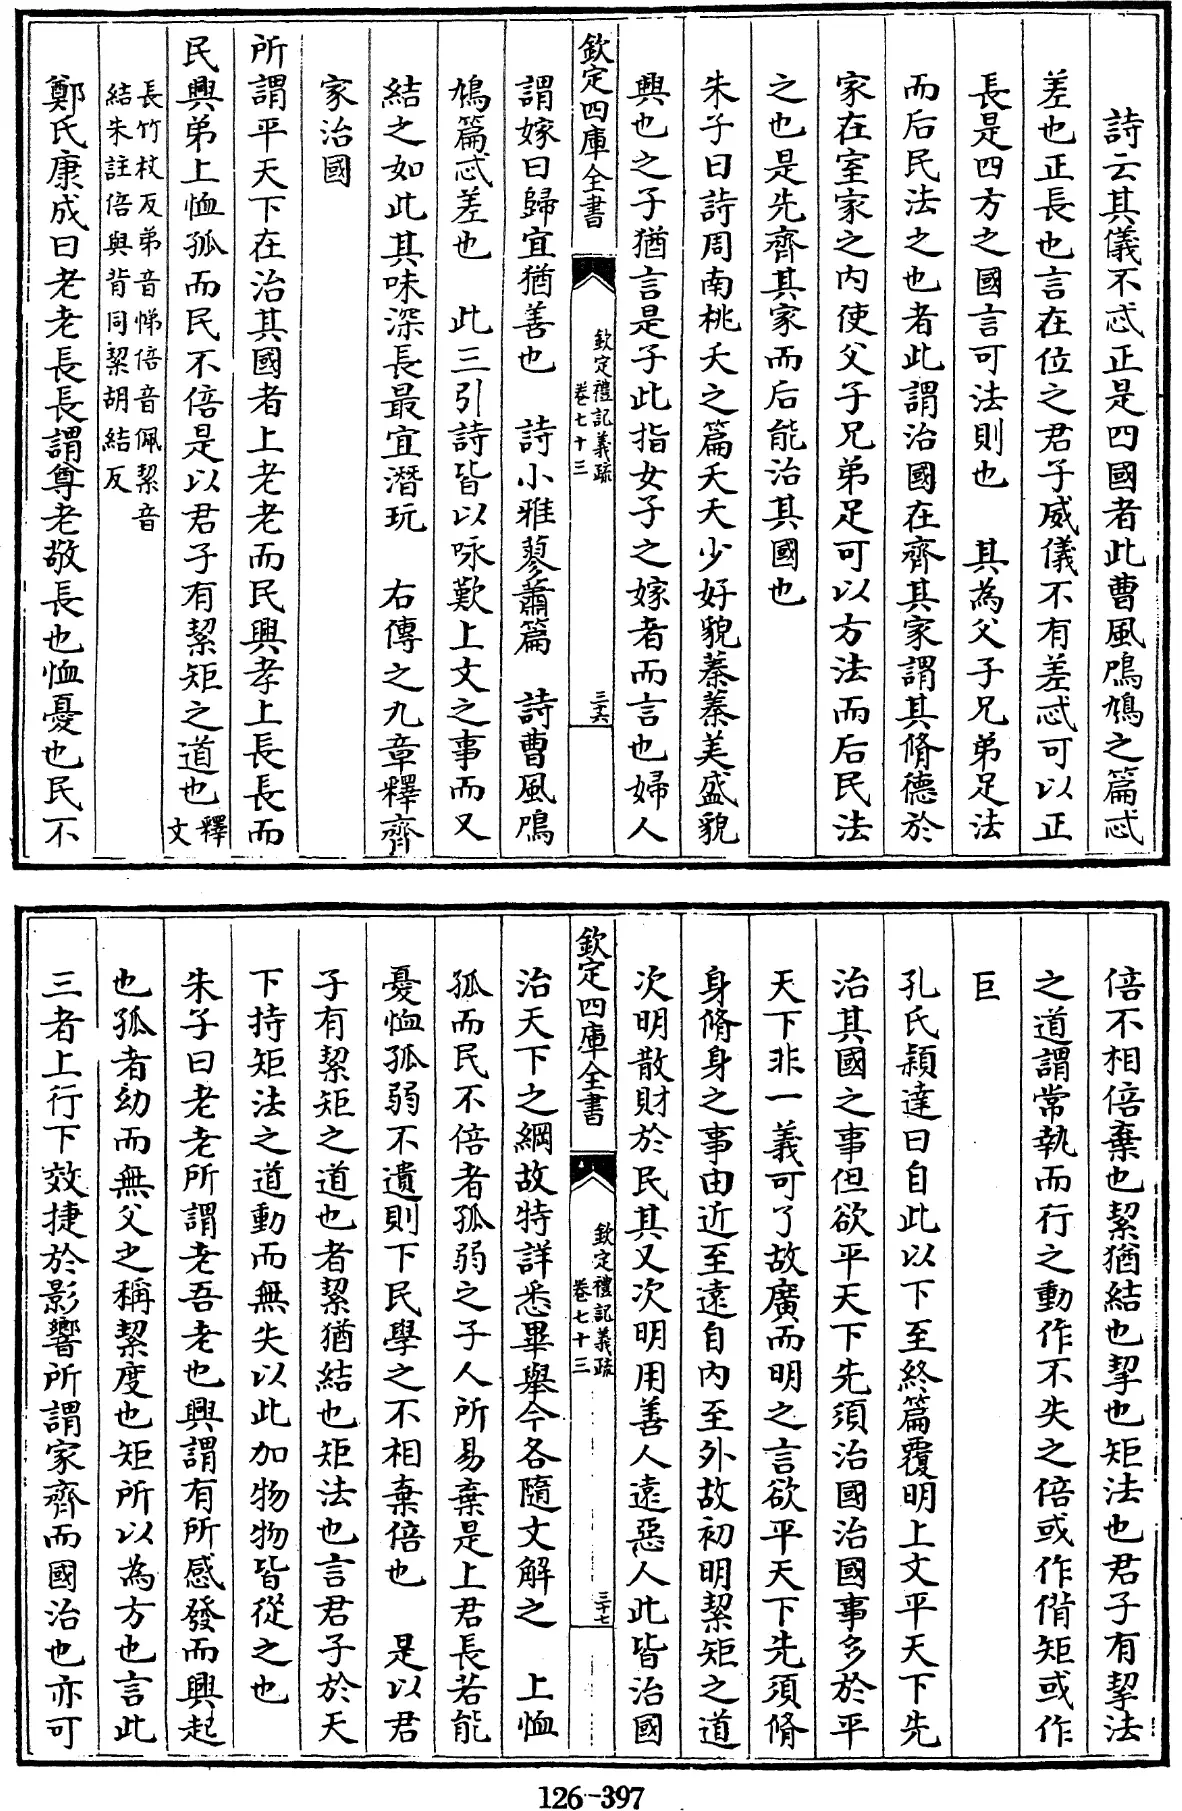 詩云其儀不忒正是四國者此曹風鳲鳩之篇忒
差也正長也言在位之君子威儀不有差忒可以正
長是四方之國言可法則也　其為父子兄弟足法
而后民法之也者此謂治國在齊其家謂其脩德於
家在室家之内使父子兄弟足可以方法而后民法
之也是先齊其家而后能治其國也
朱子曰詩周南桃夭之篇夭夭少好貌蓁蓁美盛貌
興也之子猶言是子此指女子之嫁者而言也婦人
欽定四庫全書
欽定禮記義疏
卷七十三
三六
謂嫁曰歸宜猶善也　詩小雅蓼蕭篇　詩曹風鳲
鳩篇忒差也　此三引詩皆以咏歎上文之事而又
結之如此其味深長最宜潛玩　右傳之九章釋齊
家治國
所謂平天下在治其國者上老老而民興孝上長長而
民興弟上恤孤而民不倍是以君子有絜矩之道也釋文
長竹杖反弟音悌倍音佩絜音
結朱註倍與背同絜胡結反
鄭氏康成曰老老長長謂尊老敬長也恤憂也民不
倍不相倍棄也絜猶結也挈也矩法也君子有挈法
之道謂常執而行之動作不失之倍或作偝矩或作
巨
孔氏穎達曰自此以下至終篇覆明上文平天下先
治其國之事但欲平天下先須治國治國事多於平
天下非一義可了故廣而明之言欲平天下先須脩
身脩身之事由近至遠自内至外故初明絜矩之道
次明散財於民其又次明用善人遠惡人此皆治國
欽定四庫全書
欽定禮記義疏
卷七十三
三十七
治天下之綱故特詳悉畢舉今各隨文解之　上恤
孤而民不倍者孤弱之子人所易棄是上君長若能
憂恤孤弱不遺則下民學之不相棄倍也　是以君
子有絜矩之道也者絜猶結也矩法也言君子於天
下持矩法之道動而無失以此加物物皆從之也
朱子曰老老所謂老吾老也興謂有所感發而興起
也孤者幼而無父之稱絜度也矩所以為方也言此
三者上行下效捷於影響所謂家齊而國治也亦可
126-397